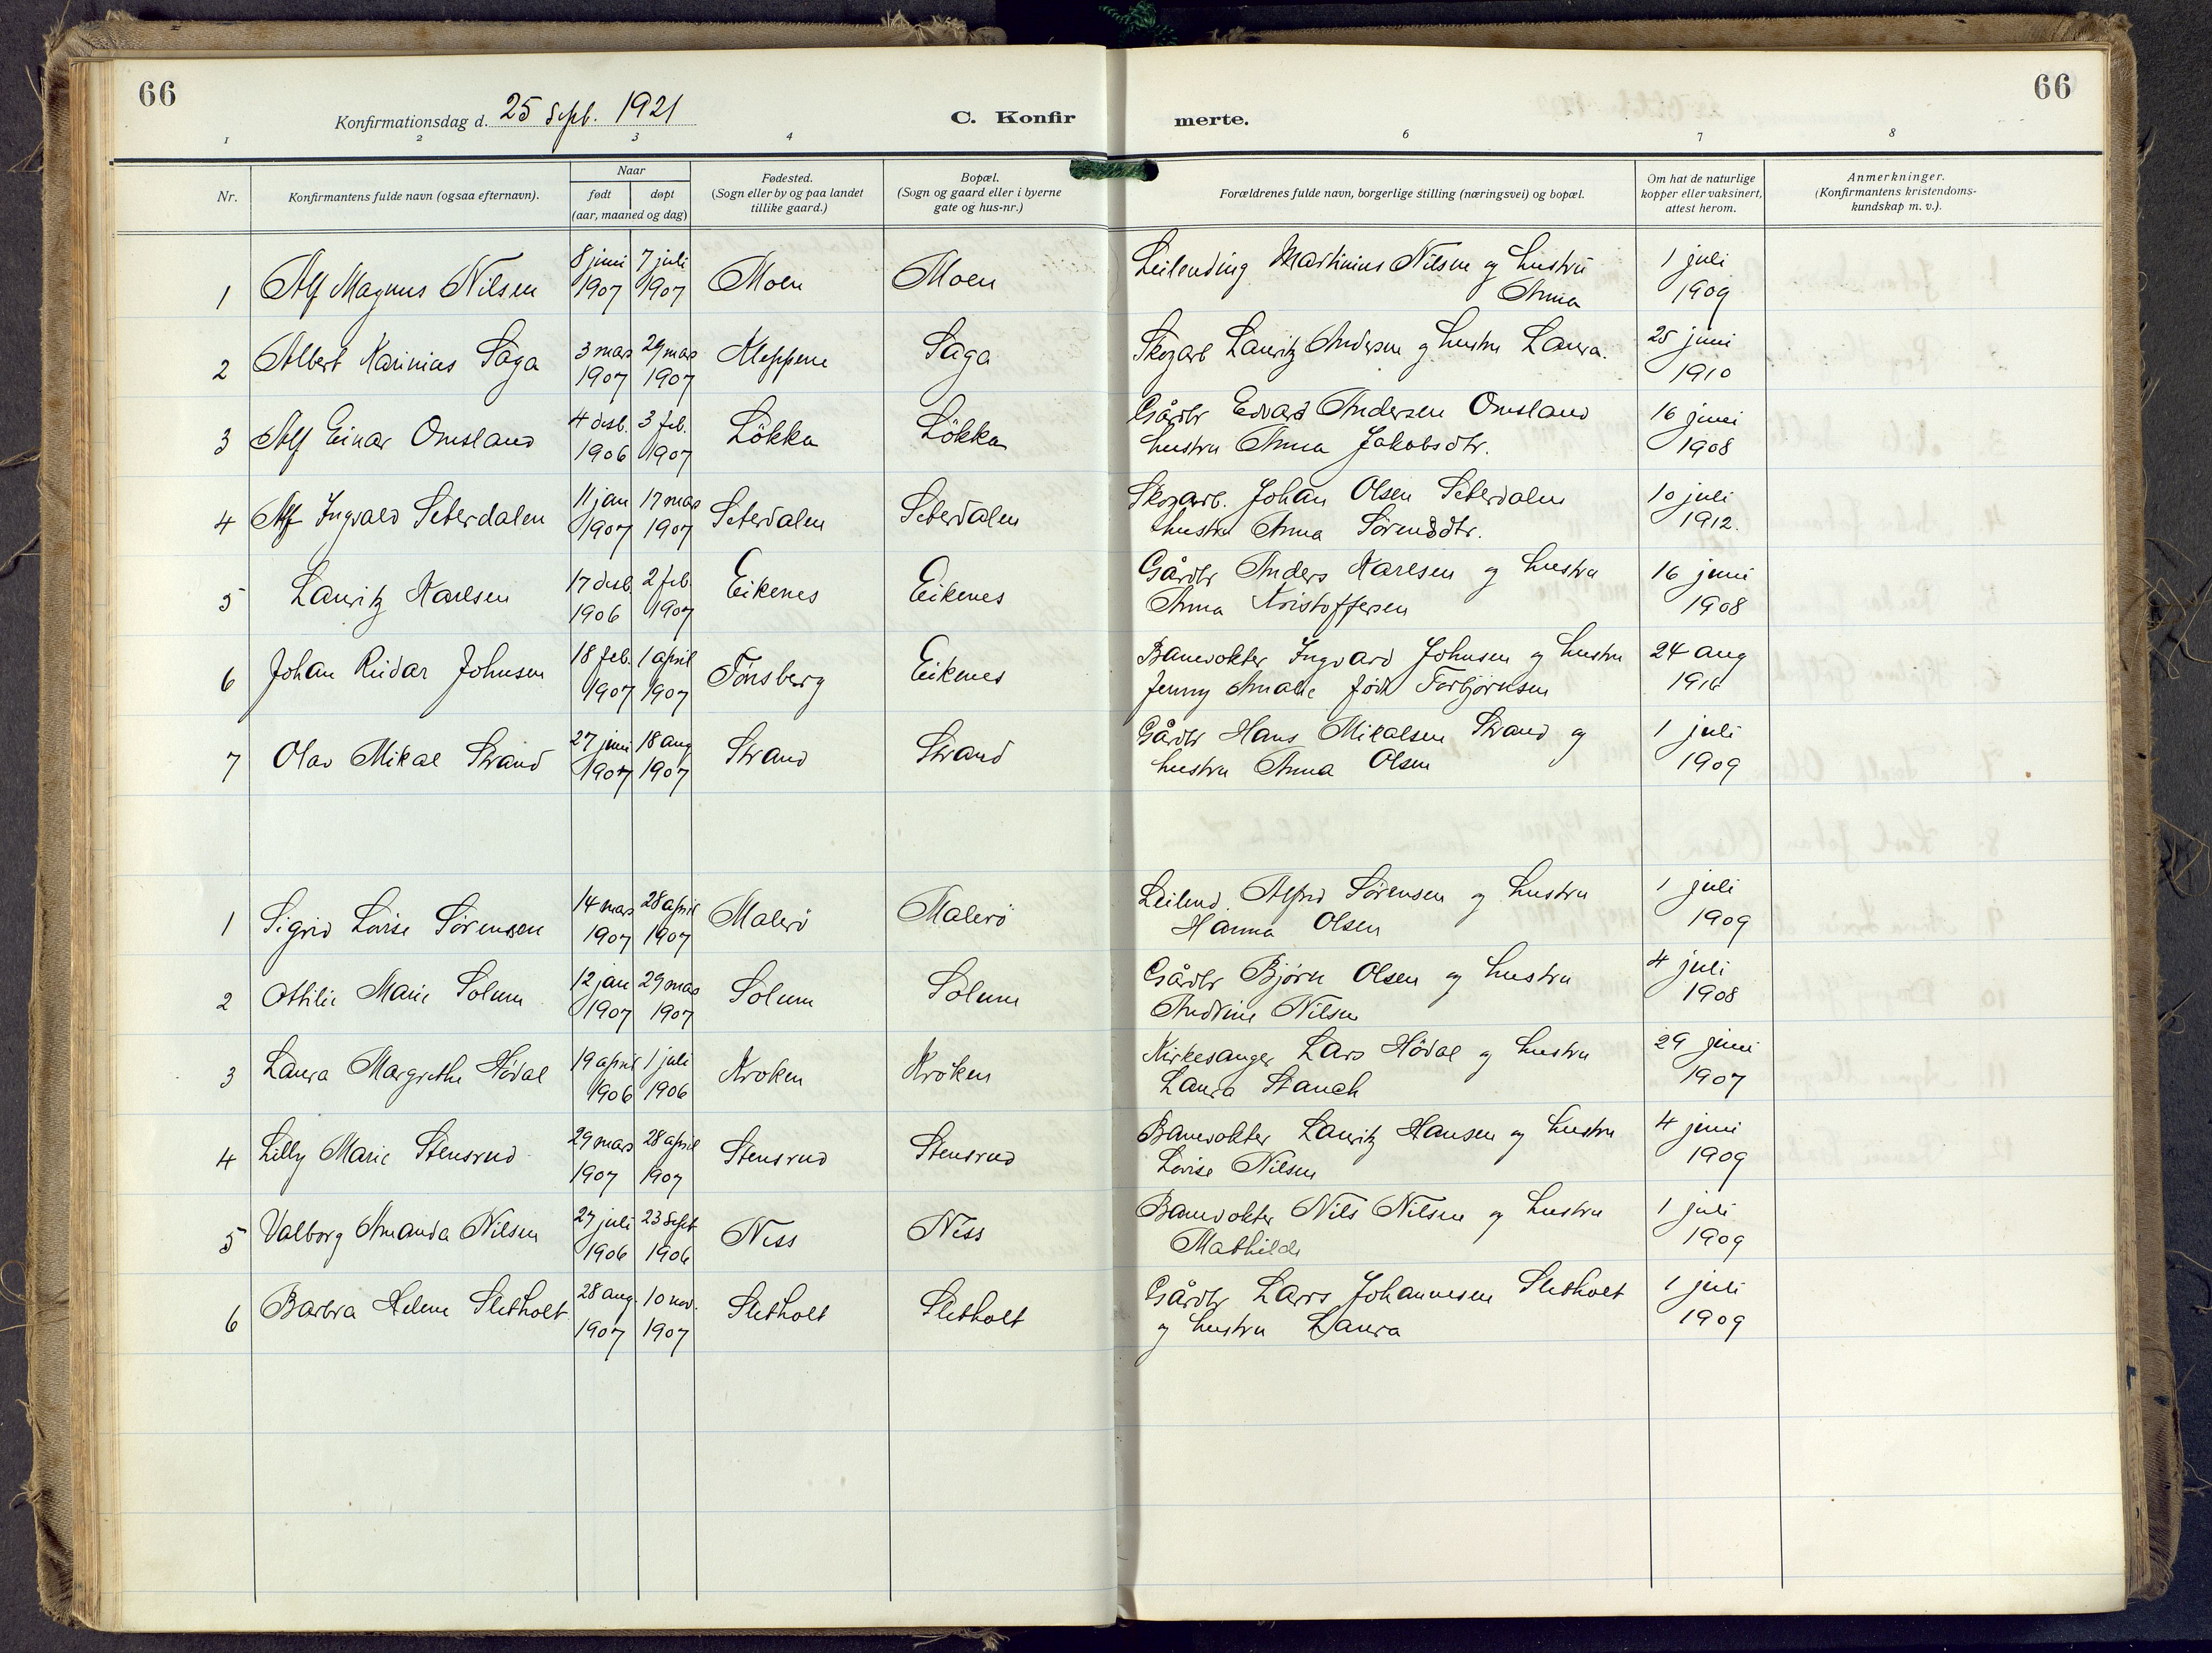 66
66
Konfirmationsdag d. 25 Sept. 1921
C. Konfir
merte.
1 2 3 4 6 7 8
Nr.
Konfirmantens fulde navn (ogsaa efternavn).
Naar
født døpt
(aar, maaned og dag)
Fødested.
(Sogn eller by og paa landet
tillike gaard.)
Bopæl.
(Sogn og gaard eller i byerne
gate og hus-nr.)
Forældrenes fulde navn, borgerlige stilling (næringsvei) og bopæl.
Om hat de naturlige
kopper eller vaksinert,
attest herom.
Anmerkninger.
(Konfirmantens kristendoms-
kundskap m. v.).
1 Alf Magnus Nilsen 8 juni 1907 7 juli 1907 Moen Moen Leilending Martinius Nilsen og hustru Anna 1 juli 1909
2 Albert Karinius Saga 3 mars 1907 29 mars 1907 Kleppene Saga Skogarb Lauritz Andersen og hustru Laura. 25 juni 1910
3 Alf Einar Omsland 4 desb. 1906 3 feb. 1907 Løkka Løkka Gårdbr Edvard Andersen Omsland hustru Anna Jakobsdtr. 16 juni 1908
4 Alf Ingvald Seterdalen 11 jan 1907 17 mars 1907 Seterdalen Seterdalen Skogarb. Johan Olsen Seterdalen hustru Anna Sørensdtr. 10 juli 1912.
5 Lauritz Karlsen 17 desb. 1906 2 feb. 1907 Eikenes Eikenes Gårdbr Anders Karlsen og hustru Anna Kristoffersen 16 juni 1908
6 Johan Reidar Johnsen 18 feb. 1907 1 april 1907 Tønsberg Eikenes Banevokter Ingvard Johnsen og hustru Jenny Amalie født Torbjørnsen 24 aug 1916
7 Olav Mikal Strand 27 juni 1907 18 aug 1907 Strand Strand Gårdbr Hans Mikalsen Strand og hustru Anna Olsen 1 juli 1909
1 Sigrid Lovise Sørensen 14 mars 1907 28 april 1907 Malerø Malerø Leilend. Alfred Sørensen og hustru Hanna Olsen 1 juli 1909
2 Ottilie Marie Solum 12 jan 1907 29 mars 1907 Solum Solum Gårdbr Bjørn Olsen og hustru Andrine Nilsen 4 juli 1908
3 Laura Margrethe Hødal 19 april 1906 1 juli 1906 Kroken Kroken Kirkesanger Lars Hødal og hustru Laura Stauch 29 juni 1907
4 Lilly Marie Stensrud 29 mars 1907 28 april 1907 Stensrud Stensrud Banevokter Lauritz Hansen og hustru Lovise Nilsen 4 juni 1909
5 Valborg Amanda Nilsen 27 juli 1906 23 Sept 1906 Ness Ness Banevokter Nils Nilsen og hustru Mathilde 1 juli 1909
6 Barbra Helene Sletholt 28 aug. 1907 10 nov. 1907 Sletholt Sletholt Gårdbr Lars Johannesen Sletholt og hustru Laura 1 juli 1909